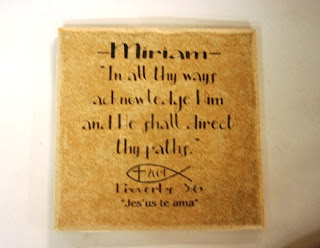 -Miriam-
"In all thy ways
acknowledge Him
and He shall direct
thy paths."
Proverbs 3:6
"Jes'us te ama"